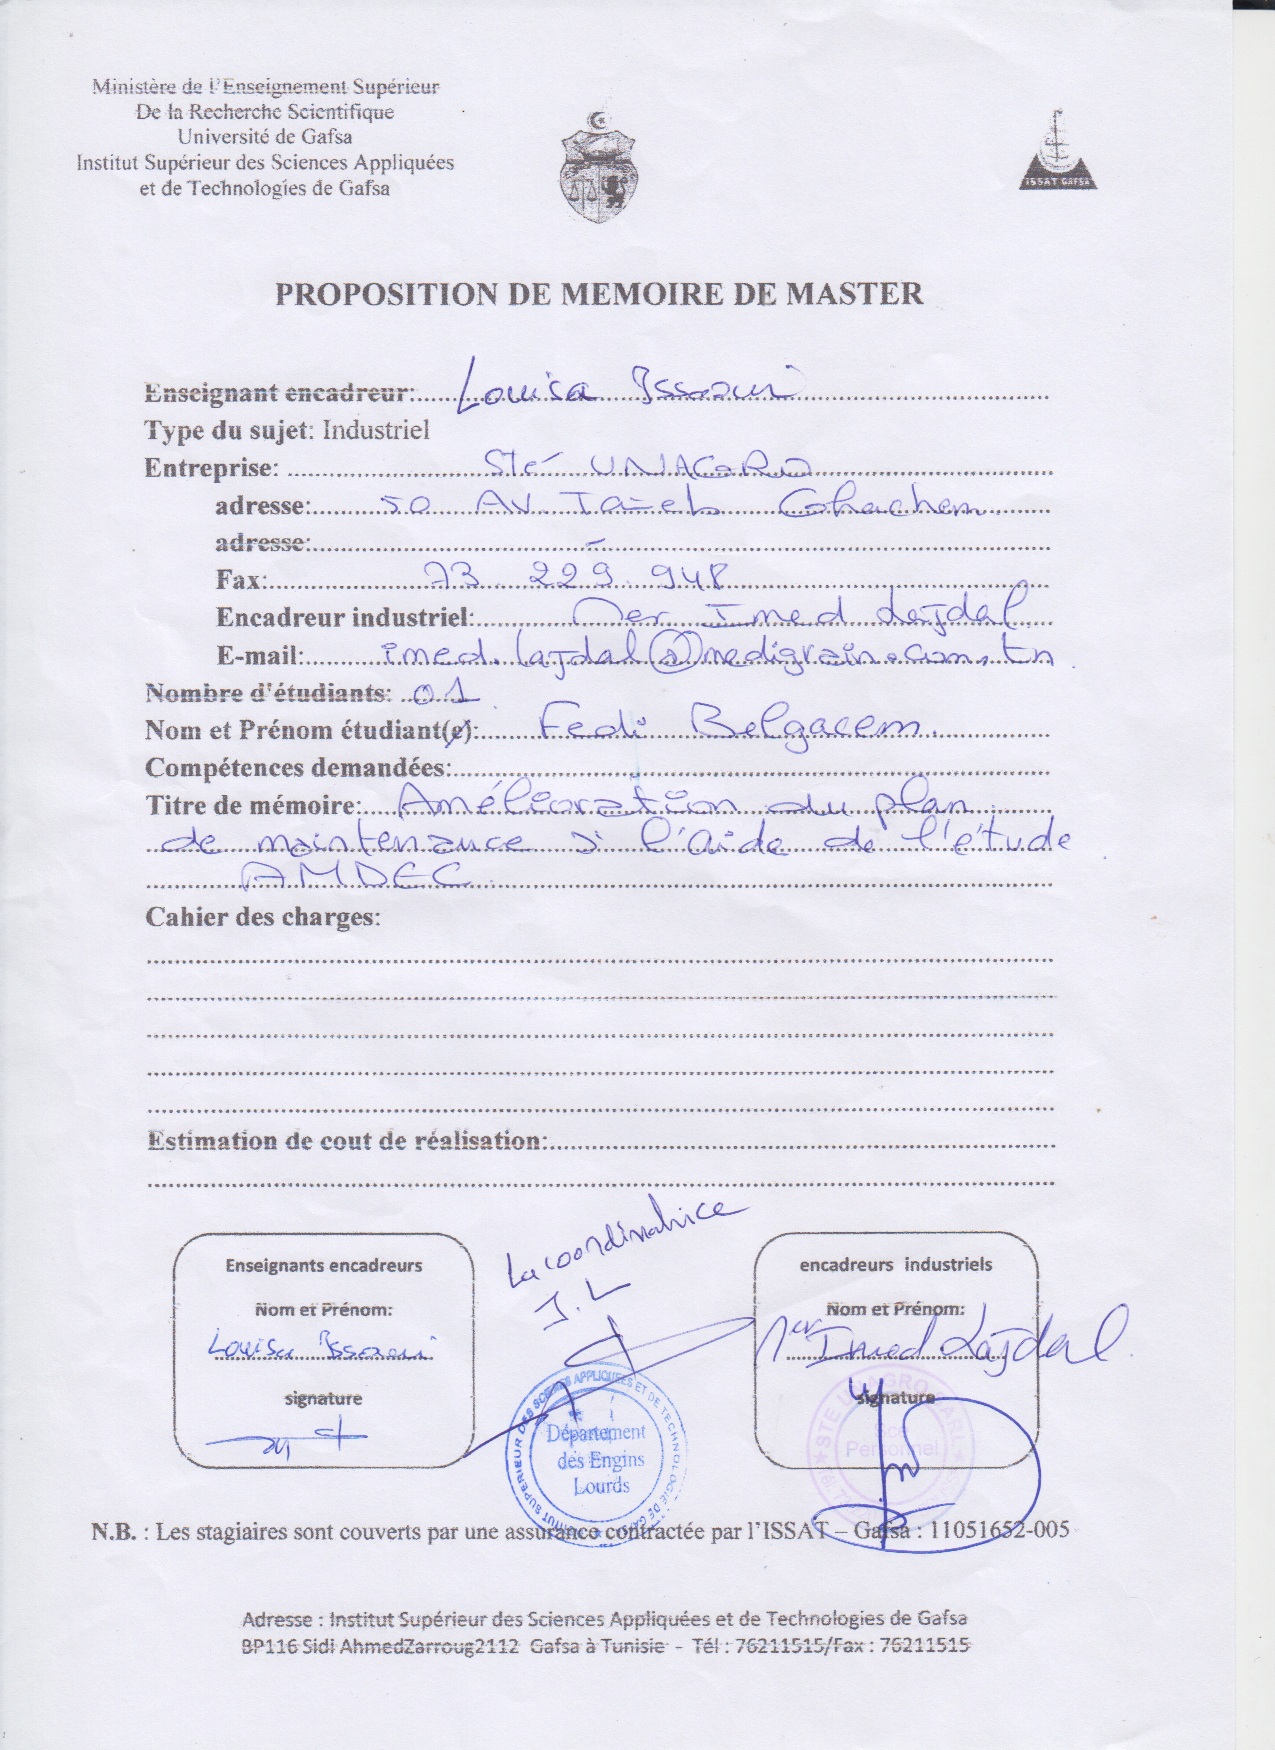 Ministère de l'Enseignement Supérieur
De la Recherche Scientifique
Université de Gafsa
Institut Supérieur des Sciences Appliquées
et de Technologies de Gafsa
ISSAT GAFSA
PROPOSITION DE MEMOIRE DE MASTER
Enseignant encadreur: Louisa Issaoui
Type du sujet: Industriel
Entreprise: Sté UNAGRO
adresse: 50 AV. Taieb Ghachem.
adresse: –
Fax: 73 229 948
Encadreur industriel: Mer Imed Lajdal
E-mail: imed.lajdal@medigrain.com.tn
Nombre d'étudiants: 01
Nom et Prénom étudiant(e): Fedi Belgacem.
Compétences demandées:
Titre de mémoire: Amélioration du plan
de maintenance à l'aide de l'étude
AMDEC
Cahier des charges:
Estimation de cout de réalisation:
La coordinatrice
J.L
Enseignants encadreurs
Nom et Prénom:
Louisa Issaoui
signature
encadreurs industriels
Nom et Prénom:
Mer Imed Lajdal
signature
INSTITUT SUPERIEUR DES SCIENCES APPLIQUEES ET DE TECHNOLOGIE DE GAFSA
Département
des Engins
Lourds
STE UNAGRO SARL
Sce
Personnel
N.B. : Les stagiaires sont couverts par une assurance contractée par l'ISSAT – Gafsa : 11051652-005
Adresse : Institut Supérieur des Sciences Appliquées et de Technologies de Gafsa
BP116 Sidi AhmedZarroug2112 Gafsa à Tunisie - Tél : 76211515/Fax : 76211515